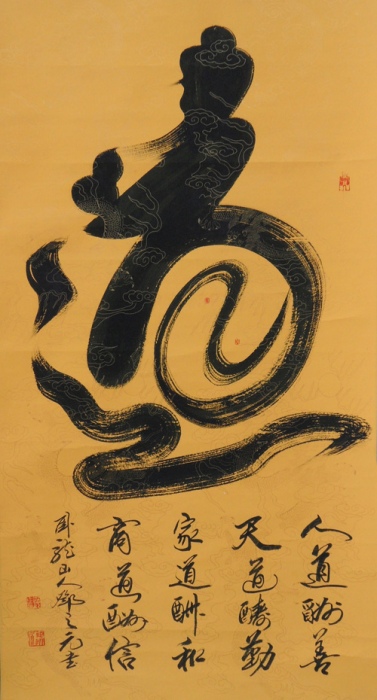 道
人道酬善
天道醻勤
家道酬和
商道酬信
卧龍山人鄧之元書